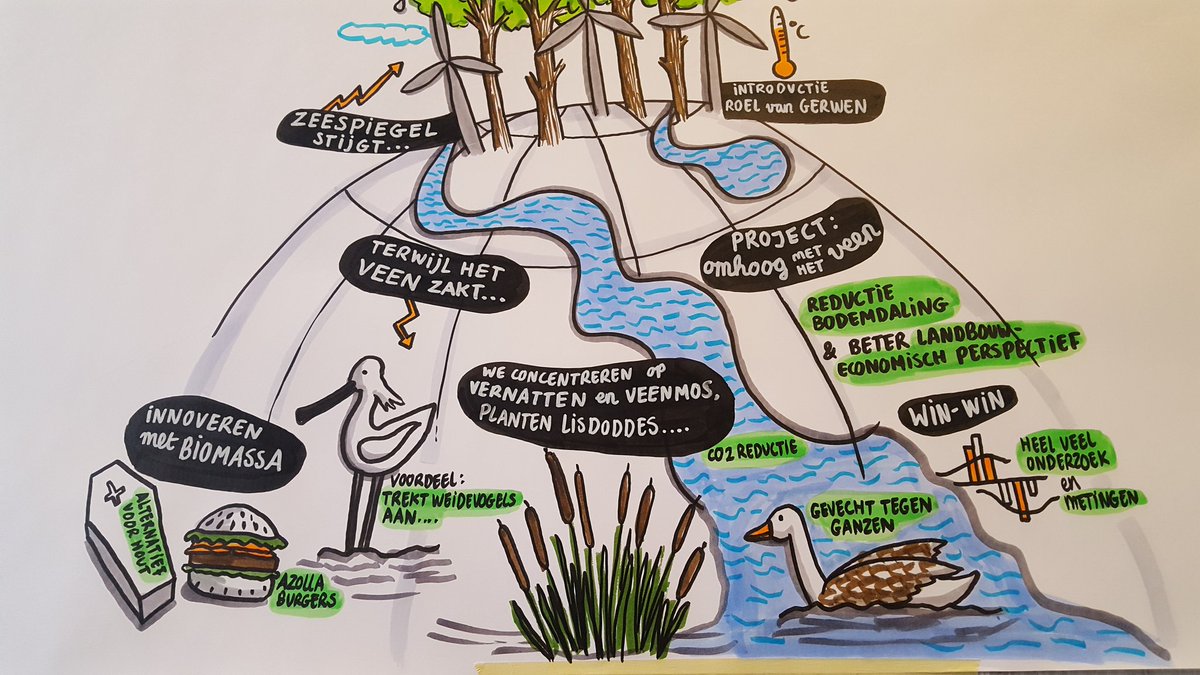 °C
INTRODUCTIE
ROEL van GERWEN
ZEESPIEGEL
STIJGT...
TERWIJL HET
VEEN ZAKT...
PROJECT:
omhoog MET HET veen
REDUCTIE
BODEMDALING
& BETER LANDBOUW-
ECONOMISCH PERSPECTIEF
WE CONCENTREREN OP
VERNATTEN en VEENMOS,
PLANTEN LISDODDES....
WIN-WIN
INNOVEREN
met BIOMASSA
CO2 REDUCTIE
HEEL VEEL
ONDERZOEK
en
METINGEN
VOORDEEL:
TREKT WEIDEVOGELS
AAN....
GEVECHT TEGEN
GANZEN
ALTERNATIEF
VOOR HOUT
AZOLLA
BURGERS